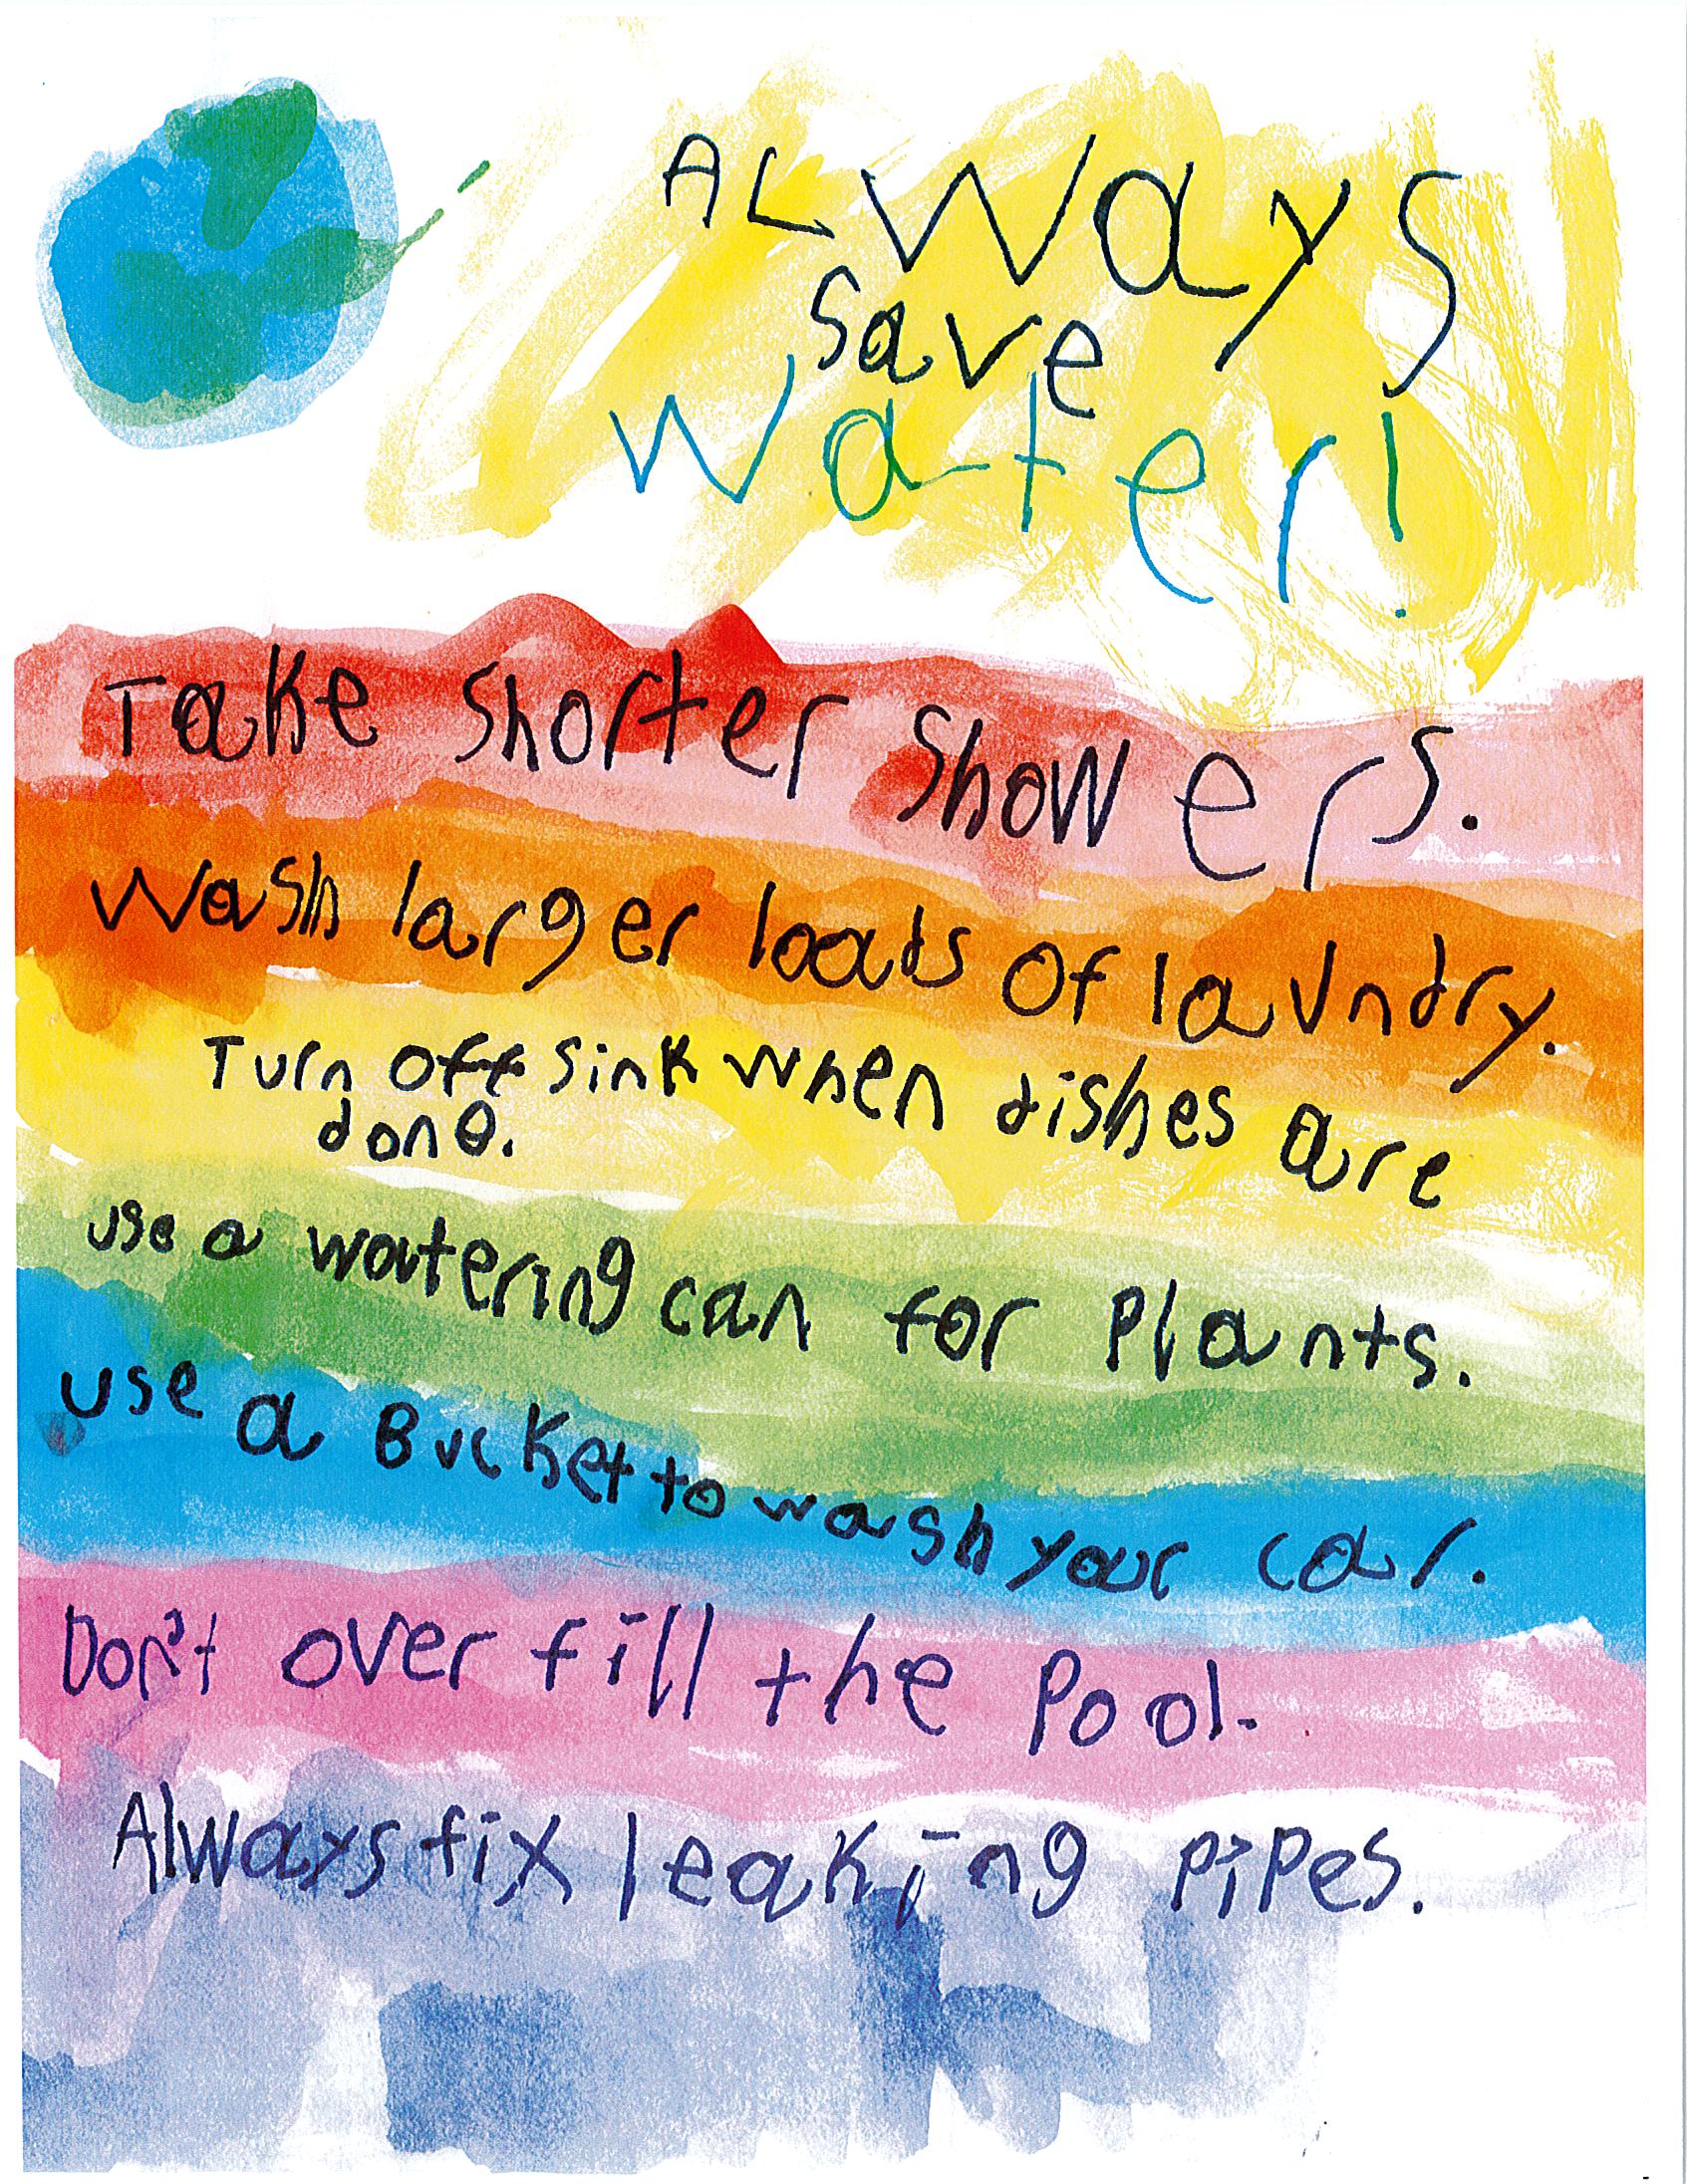 ALWays
save
water!
Take shorter showers.
Wash larger loads of laundry.
Turn off sink when dishes are
done.
use a watering can for Plants.
use a Bucket to wash your car.
Don't over fill the Pool.
Always fix leaking pipes.